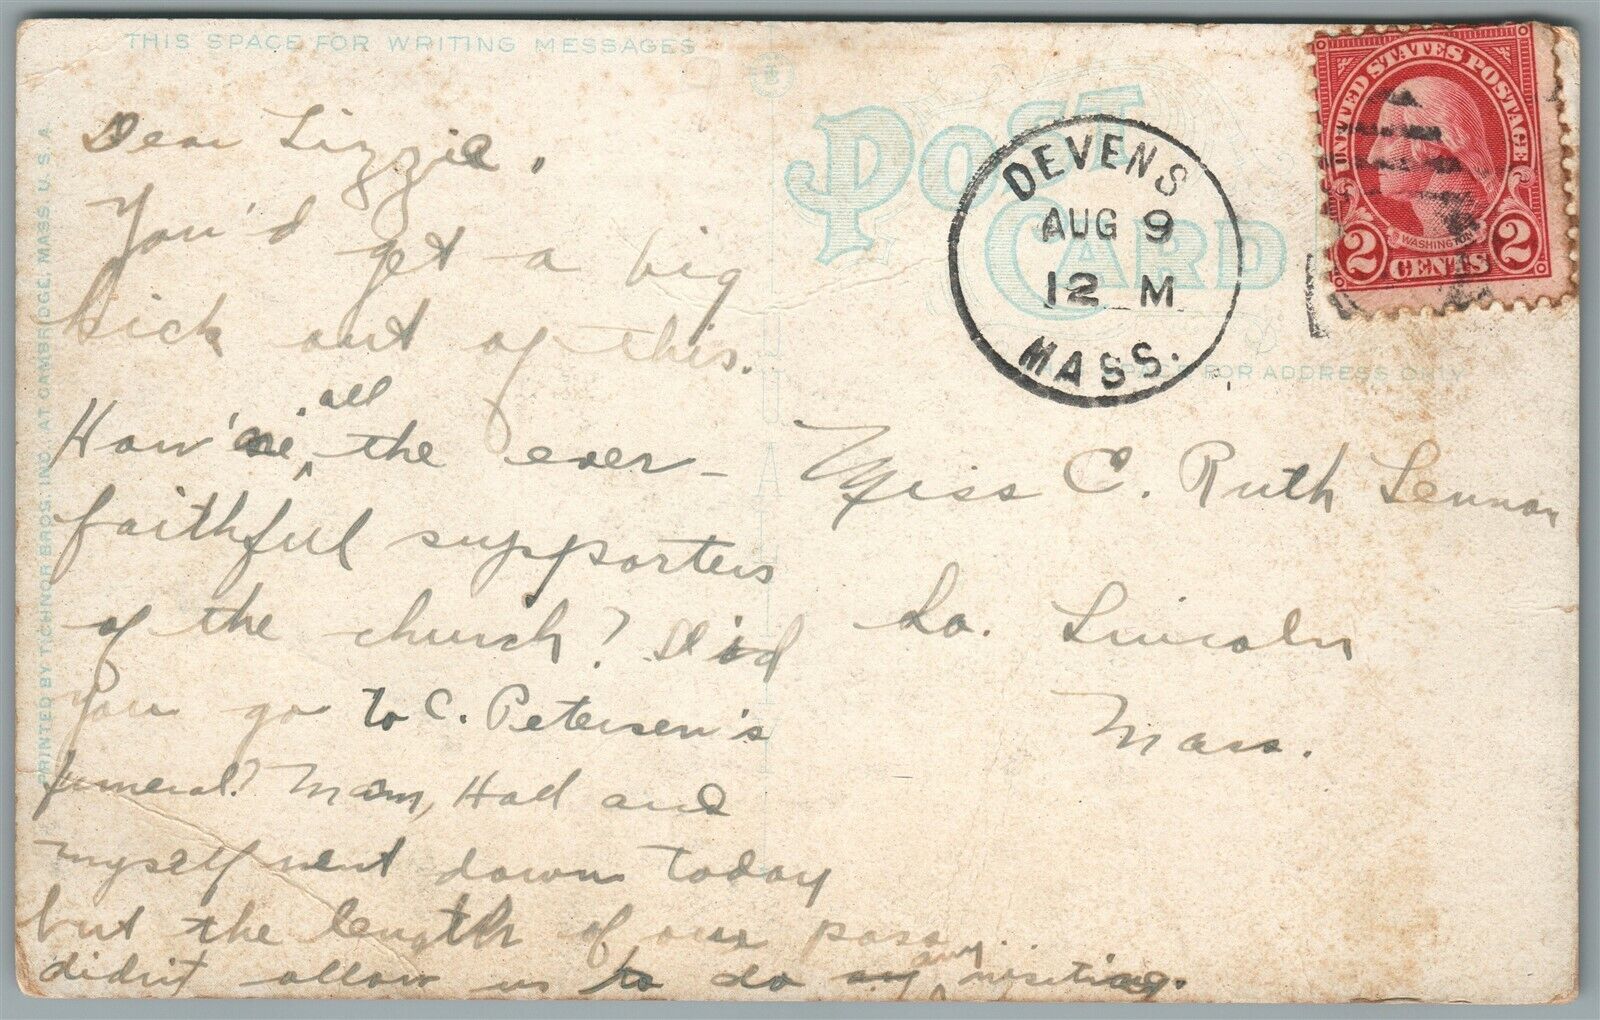 THIS SPACE FOR WRITING MESSAGES
Dear Lizzie,
You'd get a big
kick out of this.
How're all the ever-
faithful supporters
of the church? Did
you go to C. Petersen's
funeral? Mom, Hal and
myself went down today
but the length of our pass
didn't allow us to do any visiting.
PRINTED BY TICHNOR BROS. INC. AT CAMBRIDGE, MASS. U.S.A.
POST CARD
SPACE FOR ADDRESS ONLY
DEVENS
AUG 9
12 M
MASS.
UNITED STATES POSTAGE
WASHINGTON
2 CENTS 2
Miss C. Ruth Lennon
So. Lincoln
Mass.